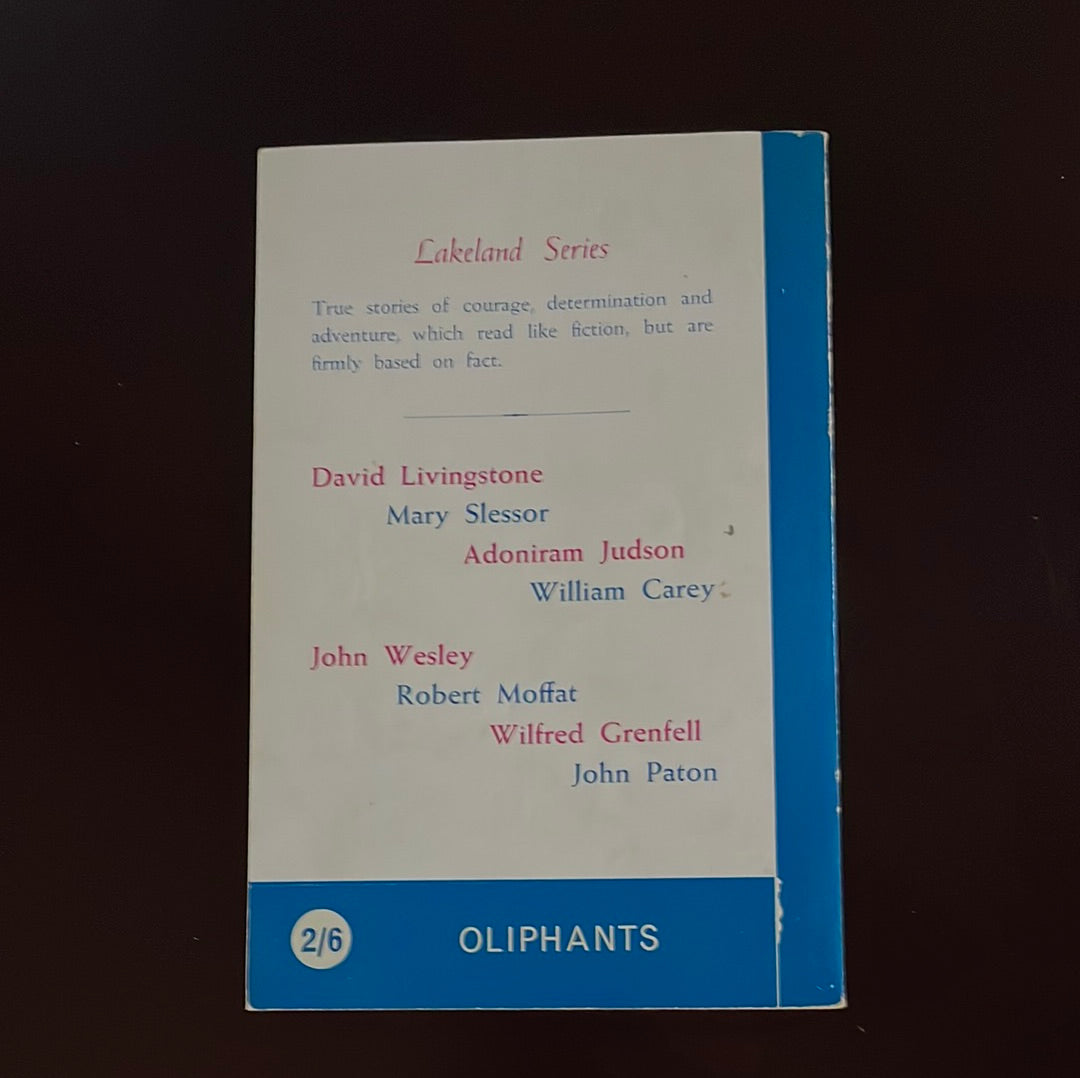 Lakeland Series
True stories of courage, determination and
adventure, which read like fiction, but are
firmly based on fact.
David Livingstone
Mary Slessor
Adoniram Judson
William Carey
John Wesley
Robert Moffat
Wilfred Grenfell
John Paton
2/6 OLIPHANTS